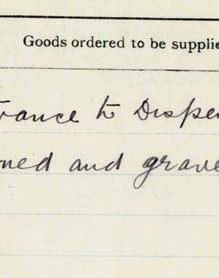 Goods ordered to be supplie
trance to Dispen
oned and grave